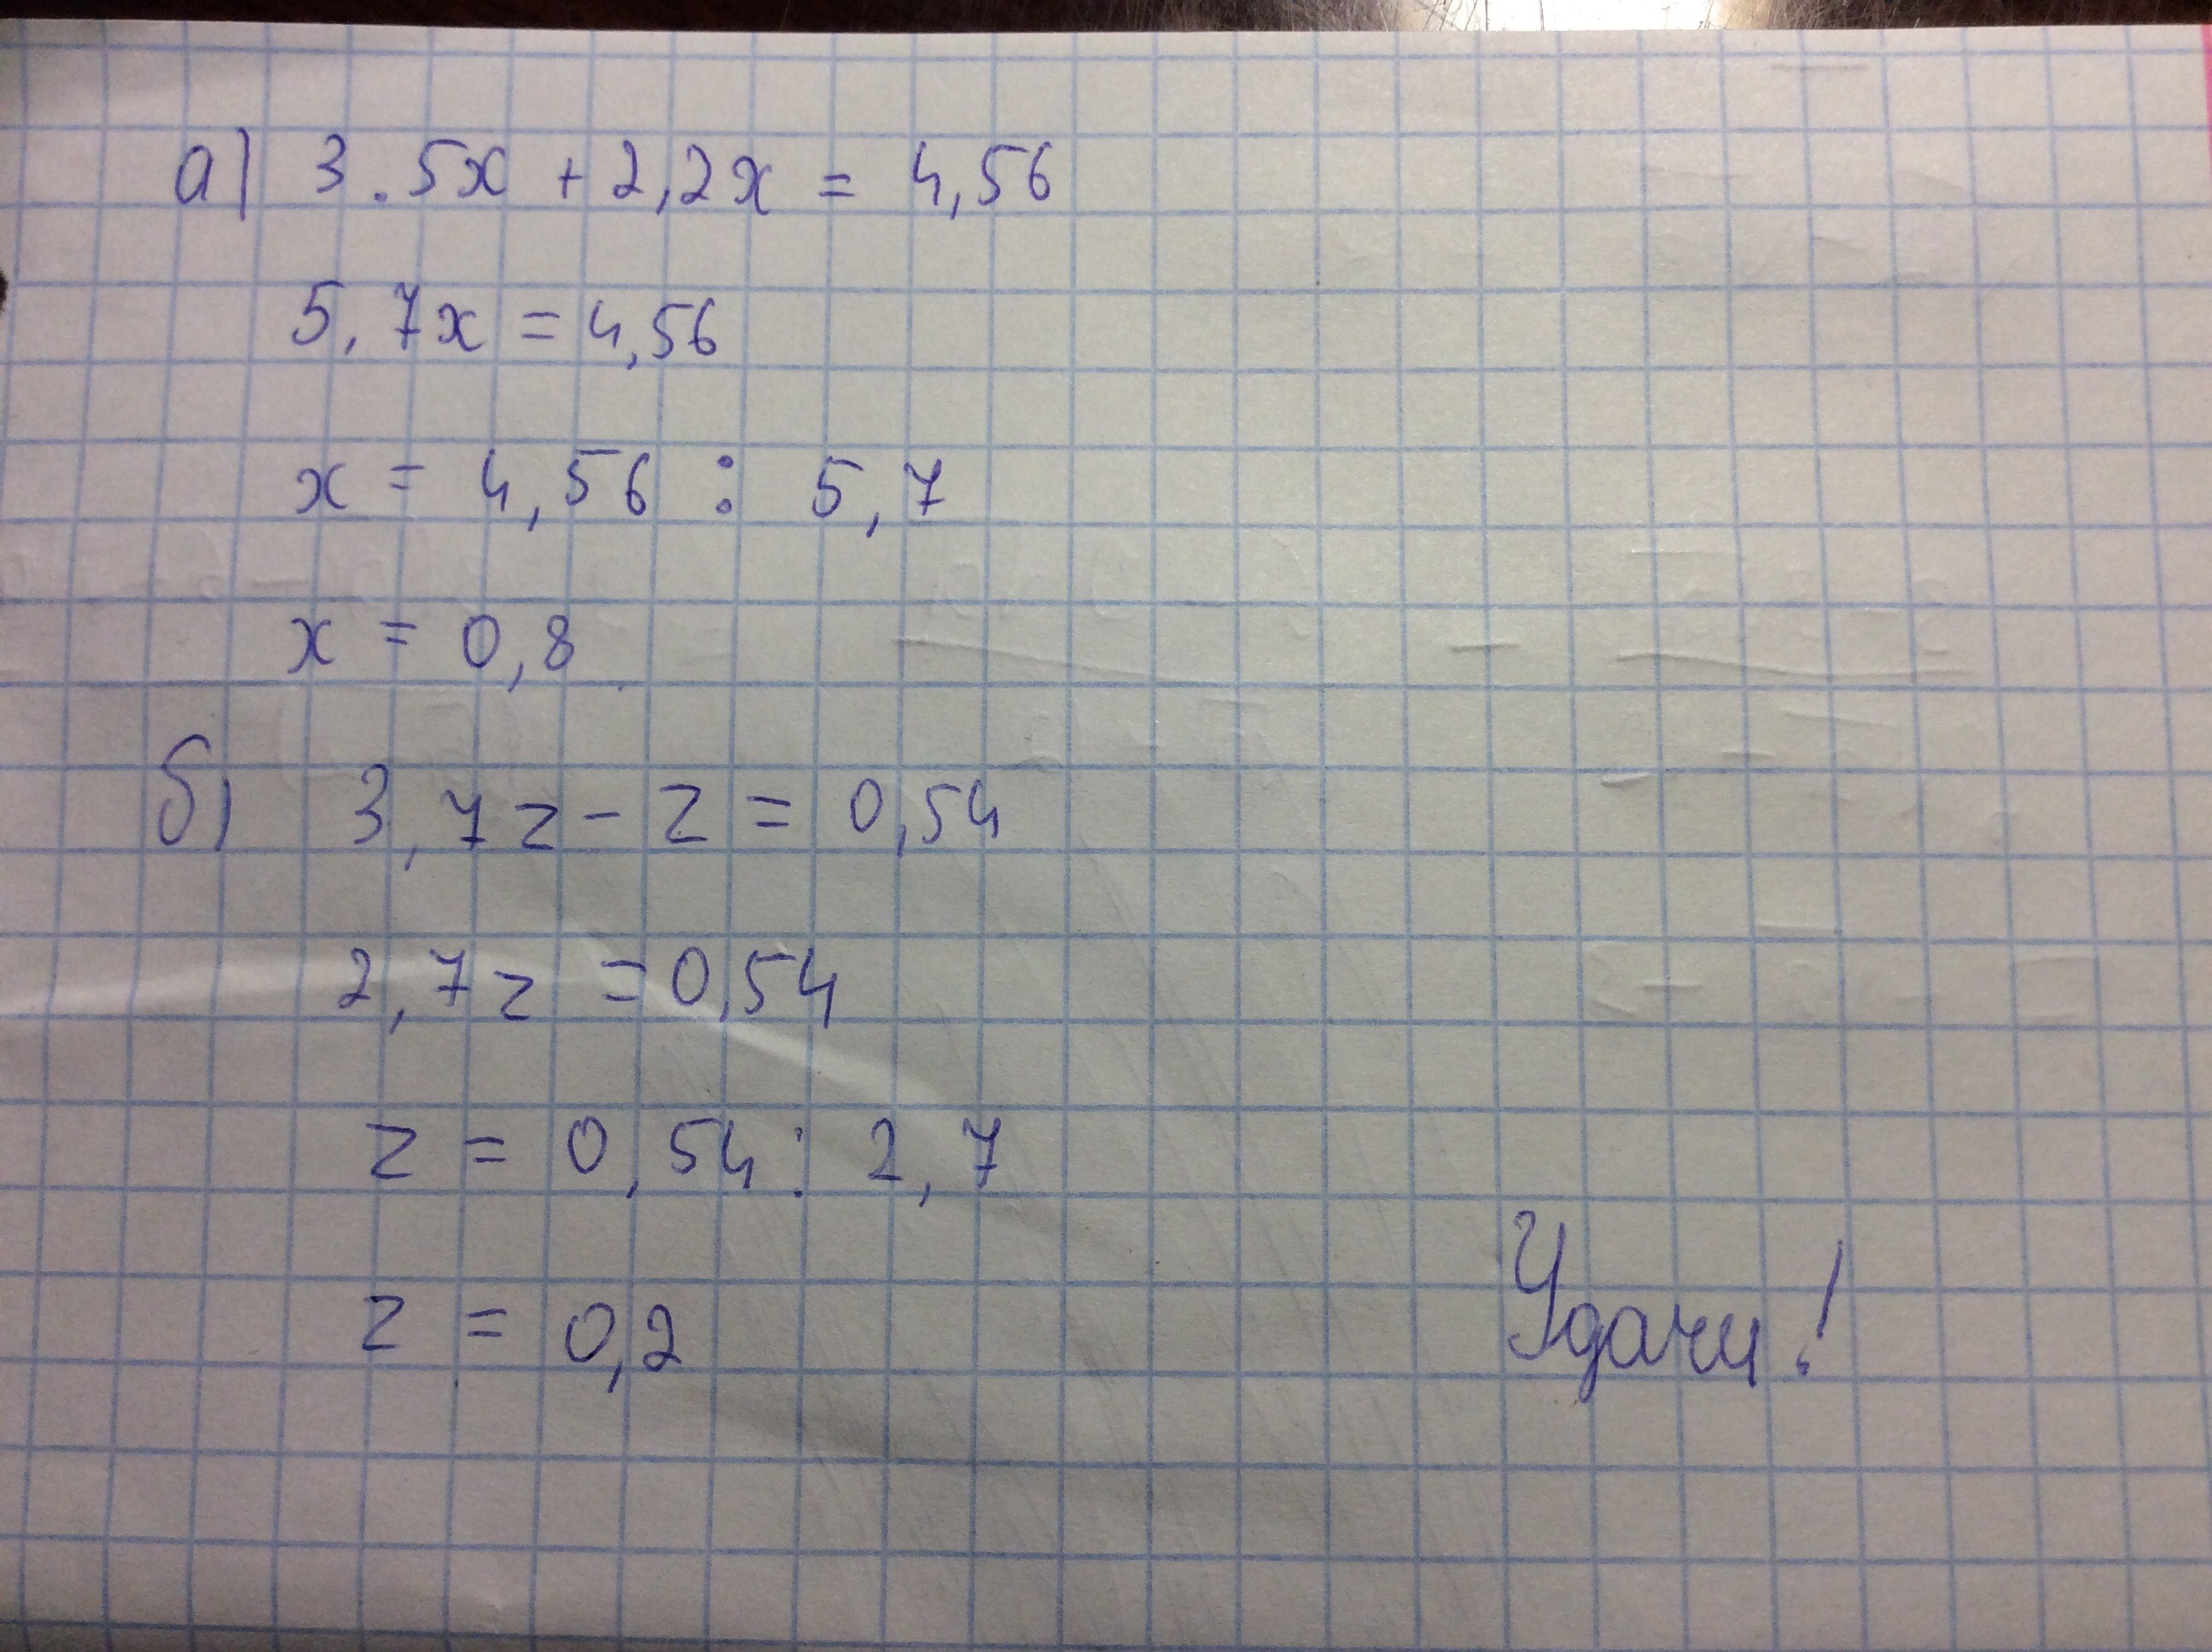 а) 3.5x + 2,2x = 4,56
5,7x = 4,56
x = 4,56 : 5,7
x = 0,8
б) 3,7z - z = 0,54
2,7z = 0,54
z = 0,54 : 2,7
z = 0,2
Удачи!